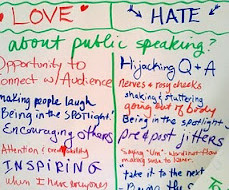 LOVE
HATE
about public speaking?
Opportunity to
connect w/Audience
making people laugh
Being in the SPOTlight!
Encouraging others
Attention &
INSPIRING
When I have everyone's
Hijacking Q + A
nerves & rosy cheeks
shaking & stuttering
going out of body
Being in the spotlight
pre & post jitters
Saying "Um"
take it to the next
Being the